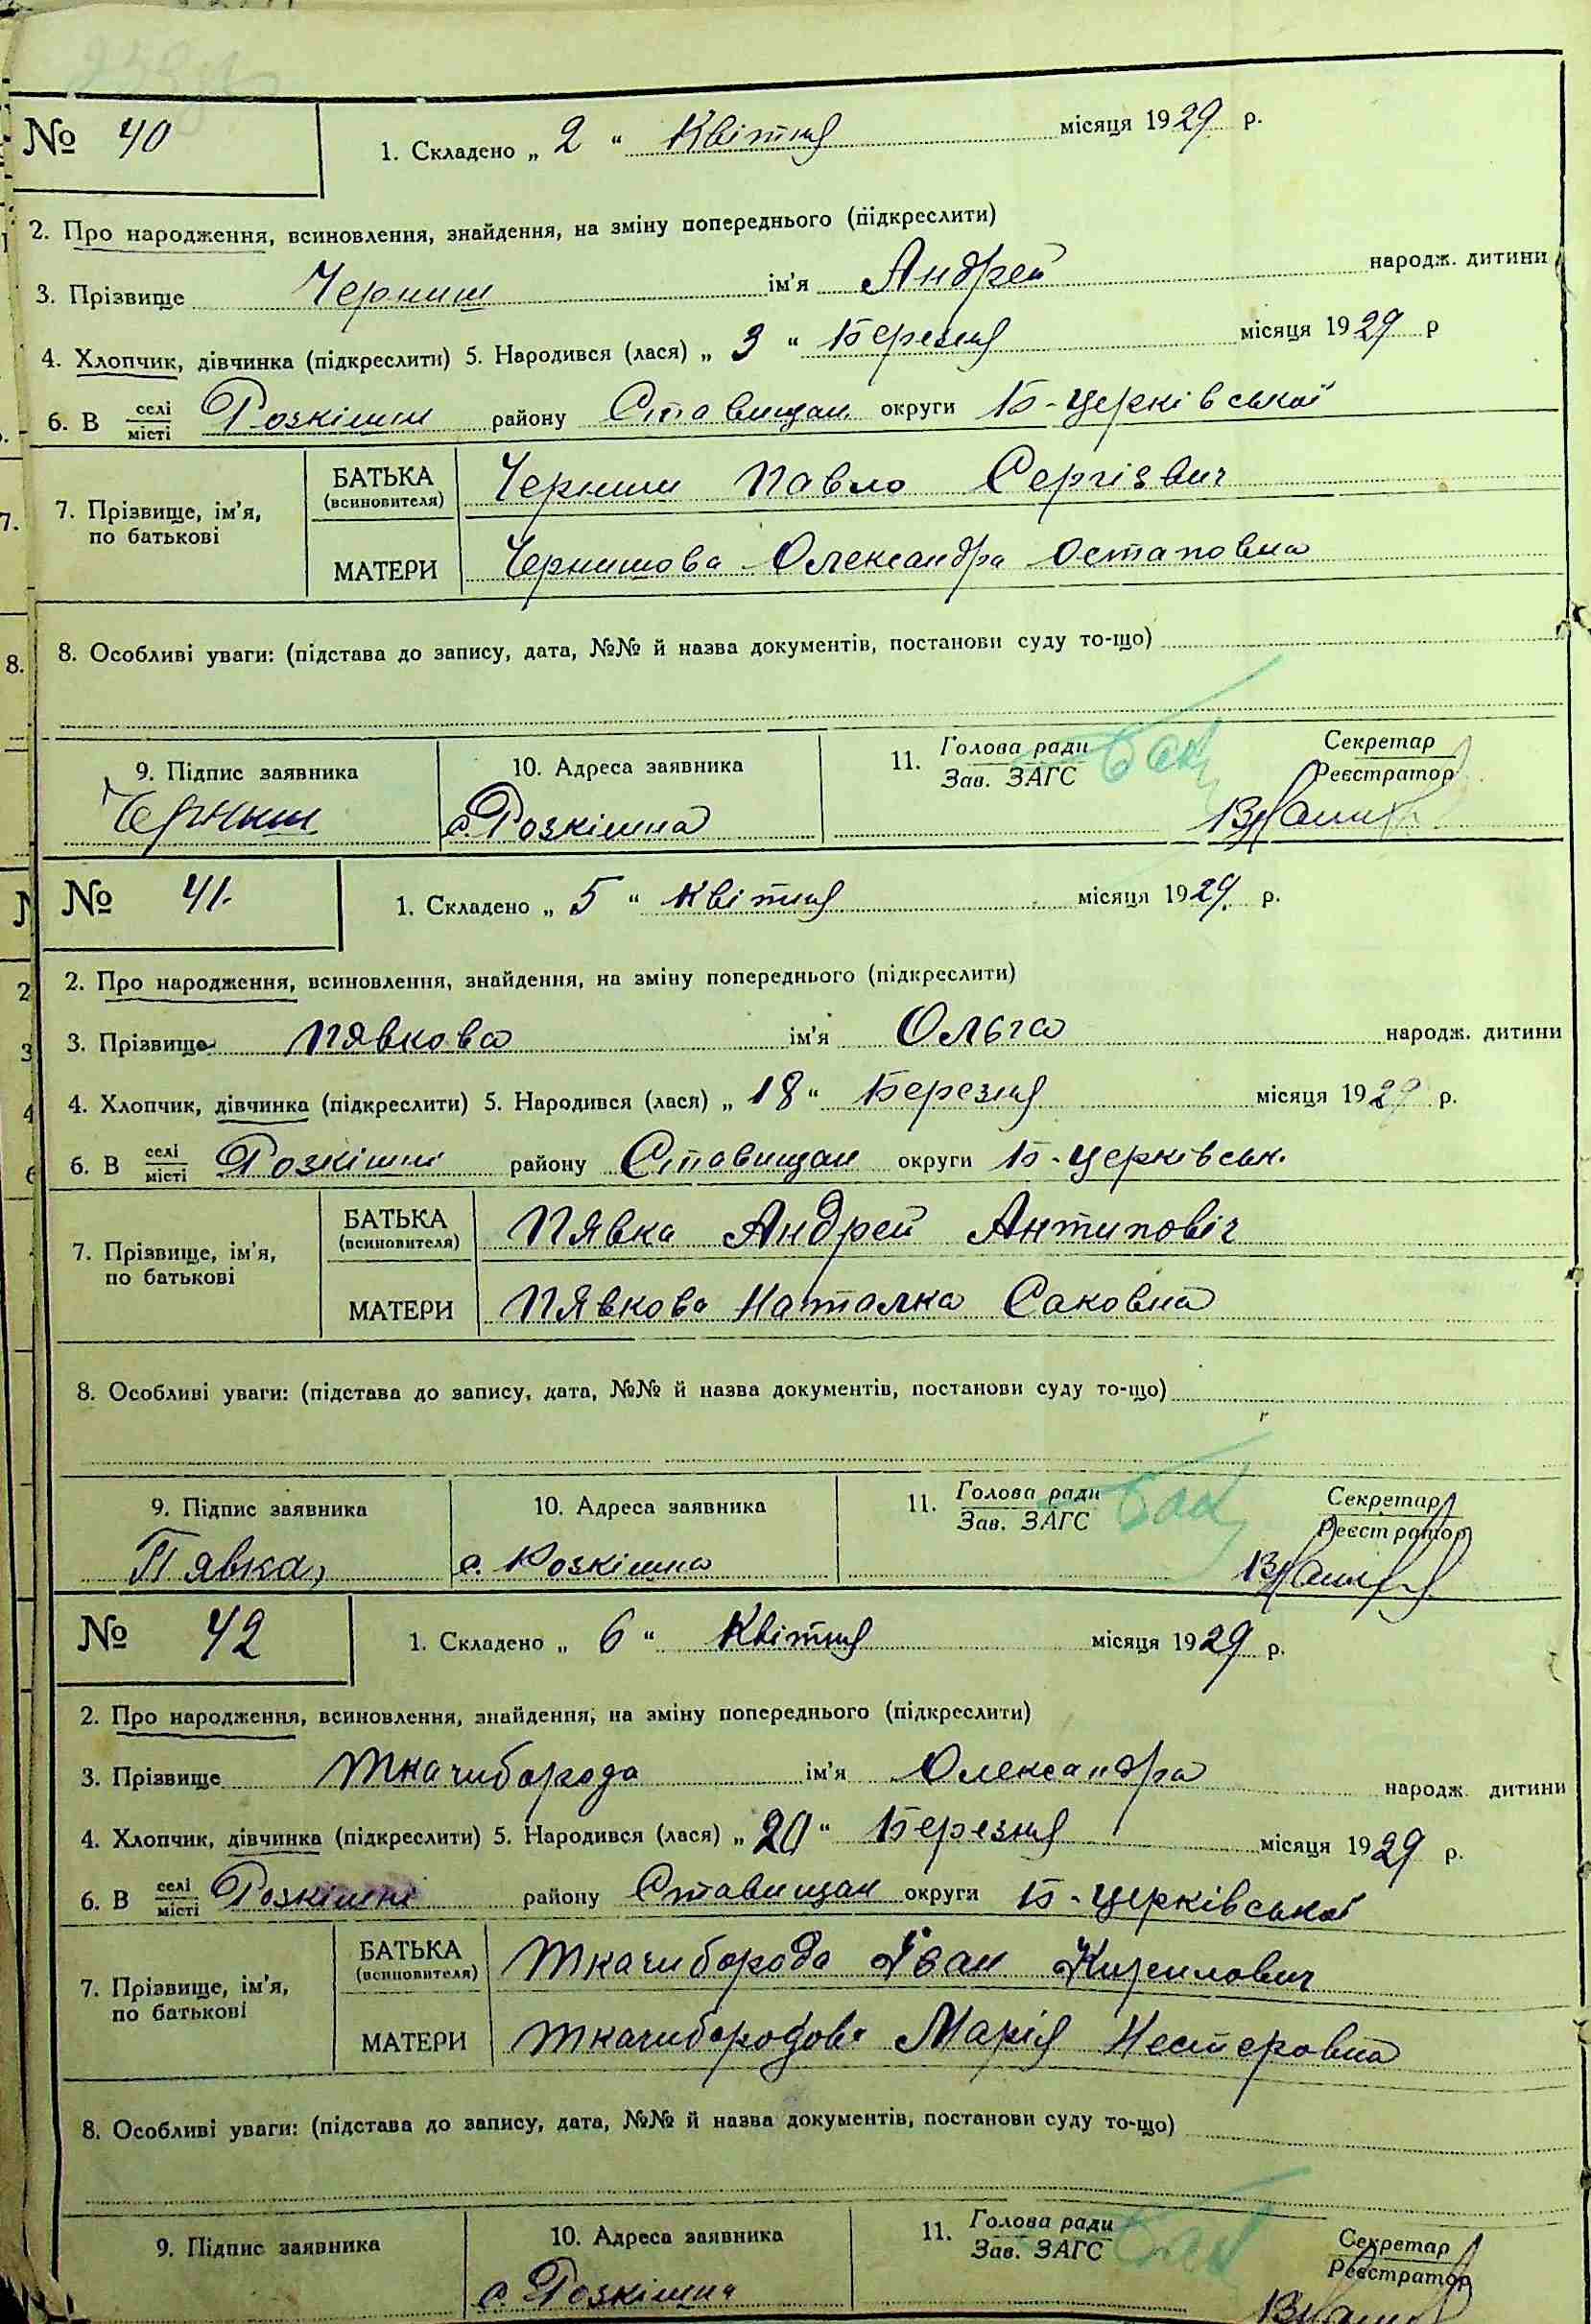 № 40
1. Складено „ 2 “ Квітня місяця 1929 р.
2. Про народження, всиновлення, знайдення, на зміну попереднього (підкреслити)
3. Прізвище Черниш ім'я Андрей народж. дитини
4. Хлопчик, дівчинка (підкреслити) 5. Народився (лася) „ 3 “ Березня місяця 1929 р
6. В селі/місті Розкішни району Ставищан округи Б-Церківської
7. Прізвище, ім'я, по батькові
БАТЬКА (всиновителя) Черниш Павло Сергієвич
МАТЕРИ Чернишова Олександра Остаповна
8. Особливі уваги: (підстава до запису, дата, №№ й назва документів, постанови суду то-що)
9. Підпис заявника
10. Адреса заявника
11. Голова ради
Зав. ЗАГС
Секретар
Реєстратор
Черниш с. Розкішна
№ 41.
1. Складено „ 5 “ Квітня місяця 1929. р.
2. Про народження, всиновлення, знайдення, на зміну попереднього (підкреслити)
3. Прізвище Пявкова ім'я Ольга народж. дитини
4. Хлопчик, дівчинка (підкреслити) 5. Народився (лася) „ 18 “ Березня місяця 1929 р.
6. В селі/місті Розкішні району Ставищан округи Б-Церківськ.
7. Прізвище, ім'я, по батькові
БАТЬКА (всиновителя) Пявка Андрей Антиповіч
МАТЕРИ Пявкова Наталка Саковна
8. Особливі уваги: (підстава до запису, дата, №№ й назва документів, постанови суду то-що)
9. Підпис заявника
10. Адреса заявника
11. Голова ради
Зав. ЗАГС
Секретар
Реєстратор
Пявка, с. Розкішна
№ 42
1. Складено „ 6 “ Квітня місяця 1929 р.
2. Про народження, всиновлення, знайдення, на зміну попереднього (підкреслити)
3. Прізвище Ткачиборода ім'я Олександра народж. дитини
4. Хлопчик, дівчинка (підкреслити) 5. Народився (лася) „ 20 “ Березня місяця 1929 р.
6. В селі/місті Розкішні району Ставищан округи Б-Церківської
7. Прізвище, ім'я, по батькові
БАТЬКА (всиновителя) Ткачиборода Іван Кирилович
МАТЕРИ Ткачибородова Марія Нестеровна
8. Особливі уваги: (підстава до запису, дата, №№ й назва документів, постанови суду то-що)
9. Підпис заявника
10. Адреса заявника
11. Голова ради
Зав. ЗАГС
Секретар
Реєстратор
с. Розкішна